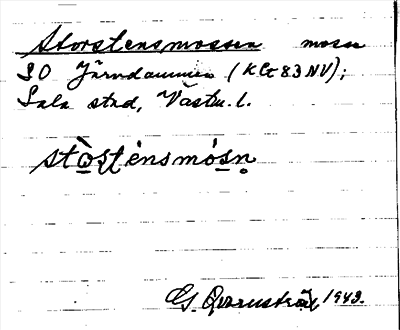 Storstensmossen mosse
SO Järndammen (KG 83 NV);
Sala stad, Västm. l.
stòsṭénsmósṇ
G. Qvarnström 1943.